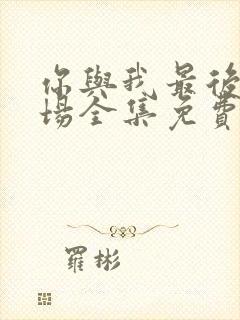 你與我最後
場全集免費
羅彬